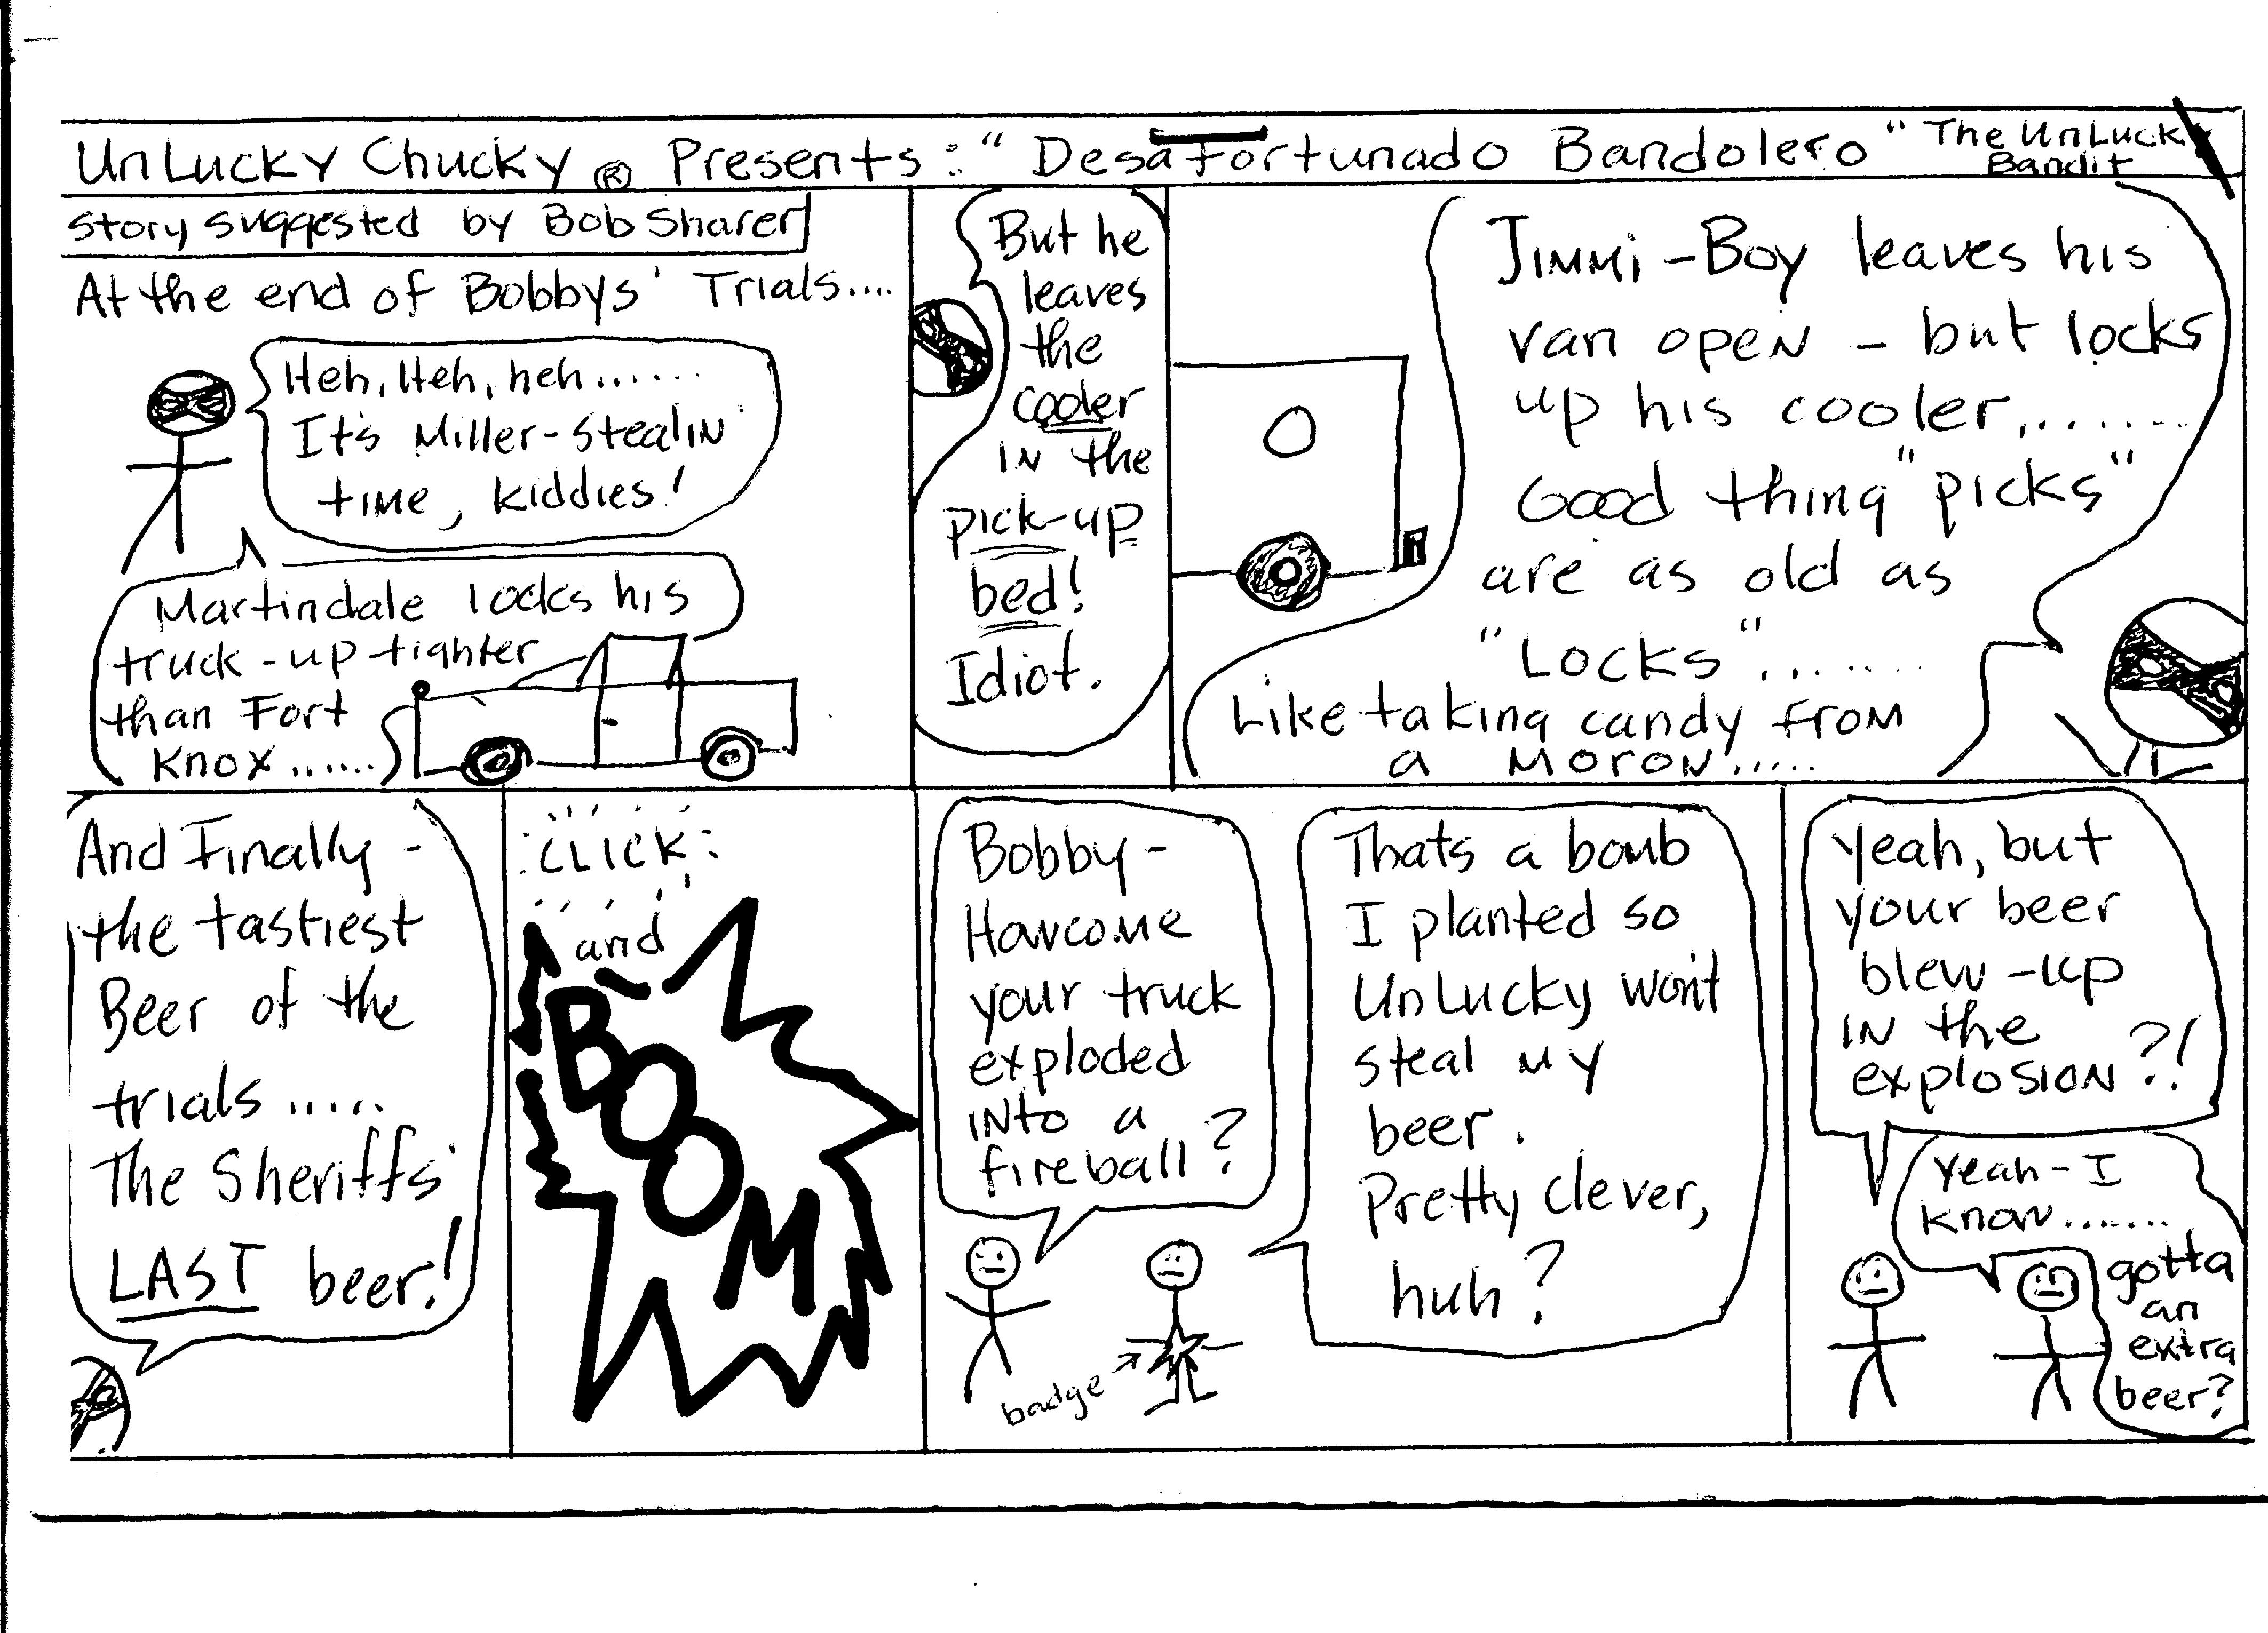 UnLucky Chucky ® Presents: "Desafortunado Bandolero" "The UnLucky
Bandit
Story suggested by Bob Sharer
At the end of Bobbys' Trials....
Heh, Heh, heh......
It's Miller-Stealin'
time, kiddies!
Martindale locks his
truck-up-tighter
than Fort
Knox......
But he
leaves
the
cooler
in the
pick-up
bed!
Idiot.
Jimmi-Boy leaves his
van open - but locks
up his cooler.......
Good thing "picks"
are as old as
"Locks".......
Like taking candy from
a moron.....
And Finally -
the tastiest
Beer of the
trials.....
The Sheriffs'
LAST beer!
CLICK
and
BOOM
Bobby -
Howcome
your truck
exploded
into a
fireball?
badge
Thats a bomb
I planted so
UnLucky won't
steal my
beer.
Pretty clever,
huh?
Yeah, but
your beer
blew-up
in the
explosion?!
Yeah - I
know.......
gotta
an
extra
beer?